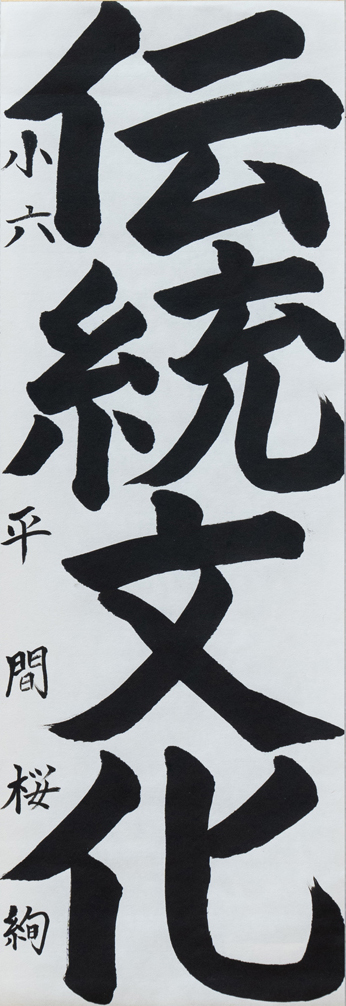 伝統文化
小六 平間桜絢